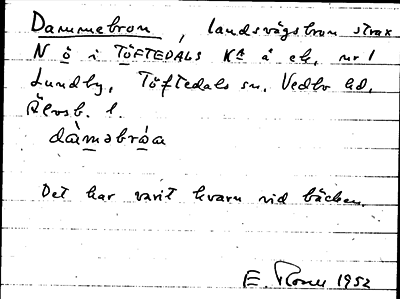 Dammebron, landsvägsbron strax
N ö i TÖFTEDALS Ka å ek. nr 1
Lundby, Töftedals sn, Vedbo hd,
Älvsb. l.
dàməbróa
Det har varit kvarn vid bäcken.
E. 1952